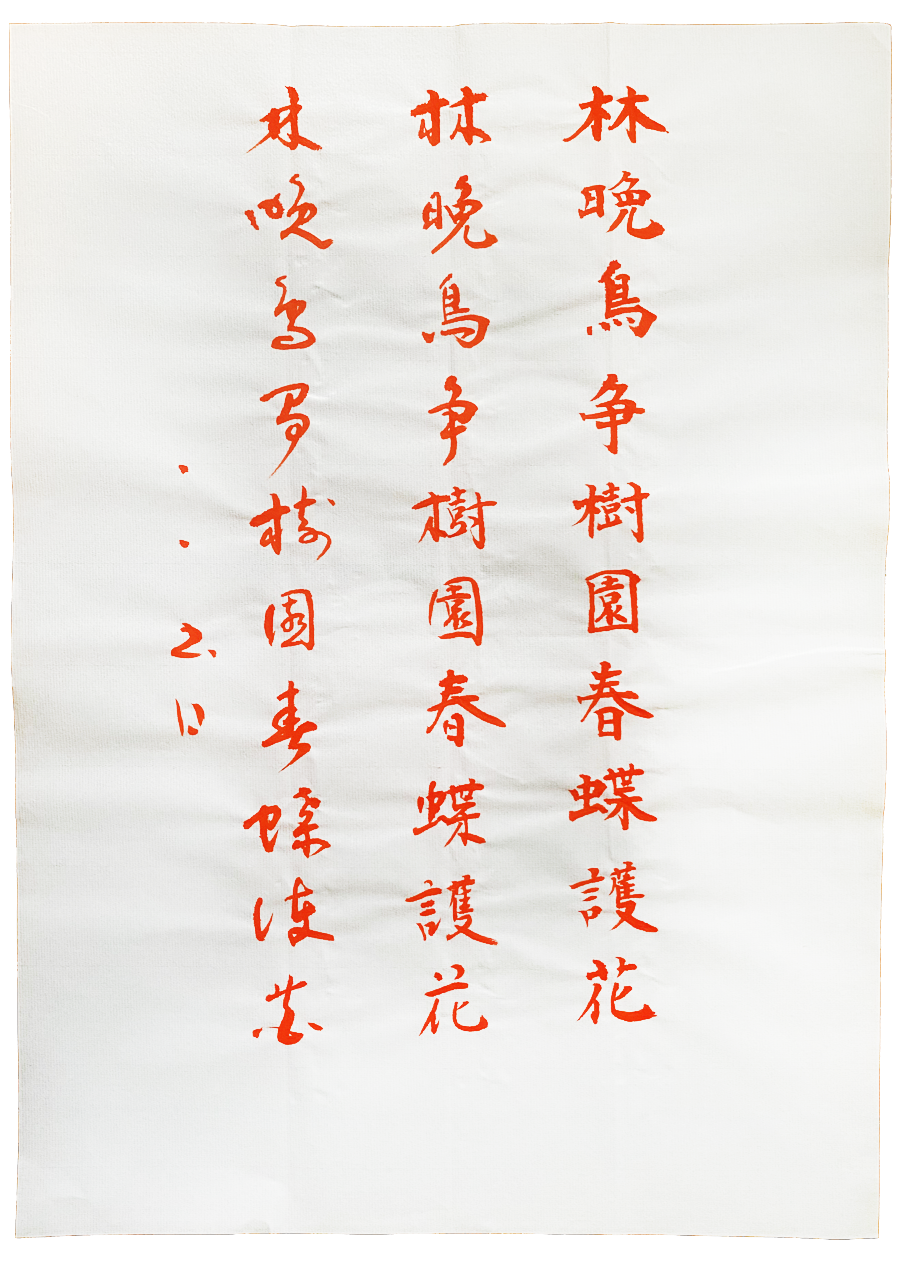 林晚鳥争樹園春蝶護花
林晚鳥争樹園春蝶護花
林晚鳥争樹園春蝶護花